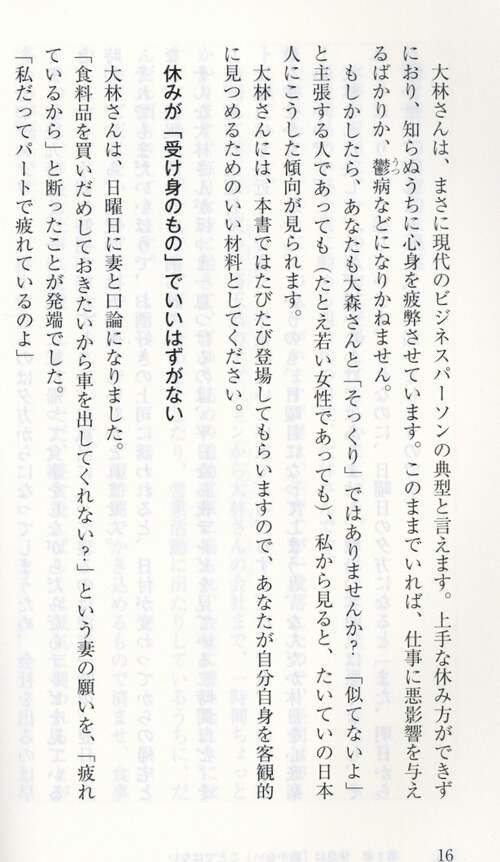 大林さんは、まさに現代のビジネスパーソンの典型と言えます。上手な休み方ができず
におり、知らぬうちに心身を疲弊させています。このままでいれば、仕事に悪影響を与え
るばかりか、鬱病などになりかねません。
うつ
もしかしたら、あなたも大森さんと「そっくり」ではありませんか?「似てないよ」
と主張する人であっても(たとえ若い女性であっても)、私から見ると、たいていの日本
人にこうした傾向が見られます。
大林さんには、本書ではたびたび登場してもらいますので、あなたが自分自身を客観的
に見つめるためのいい材料としてください。
休みが「受け身のもの」でいいはずがない
大林さんは、日曜日に妻と口論になりました。
「食料品を買いだめしておきたいから車を出してくれない?」という妻の願いを、「疲れ
ているから」と断ったことが発端でした。
「私だってパートで疲れているのよ」
16